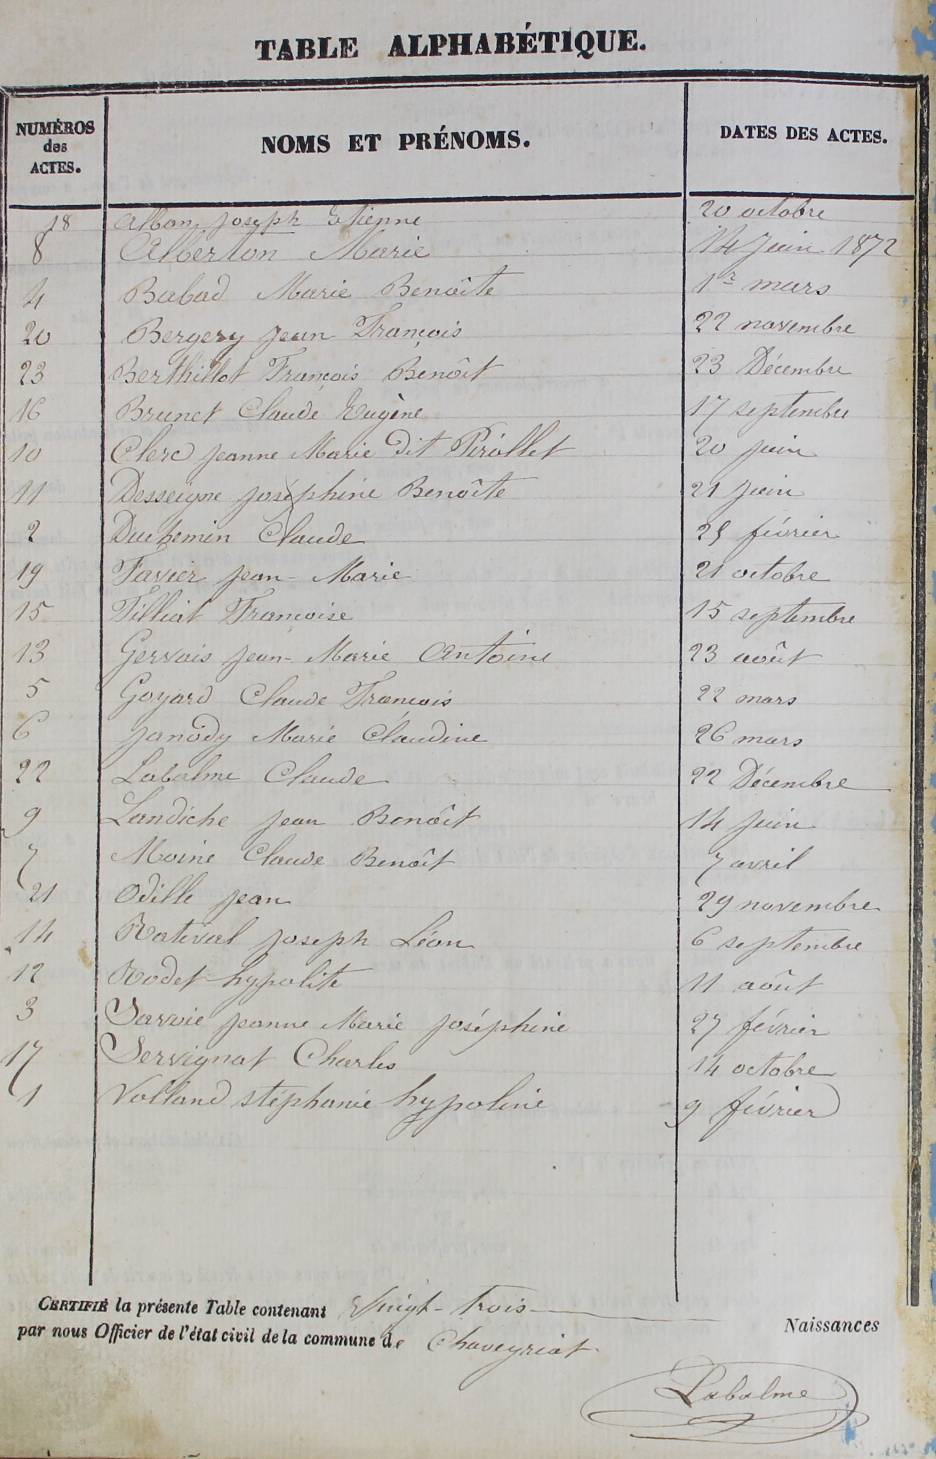 TABLE ALPHABÉTIQUE.
NUMÉROS des ACTES. NOMS ET PRÉNOMS. DATES DES ACTES.
18 Alban Joseph Etienne 20 octobre
8 Alberton Marie 14 Juin 1872
4 Babad Marie Benoîte 1r mars
20 Bergery Jean François 22 novembre
23 Berthillot François Benoît 23 Décembre
16 Brunet Claude Eugène 17 septembre
10 Clerc Jeanne Marie dit Pirollet 20 juin
11 Desseigne Joséphine Benoîte 21 juin
2 Duchemin Claude 25 février
19 Favier Jean-Marie 21 octobre
15 Filliat Françoise 15 septembre
13 Gervais Jean-Marie Antoine 23 août
5 Goyard Claude François 22 mars
6 Janody Marie Claudine 26 mars
22 Labalme Claude 22 Décembre
9 Landiche Jean Benoît 14 juin
7 Moine Claude Benoît 7 avril
21 Odille Jean 29 novembre
14 Rativel Joseph Léon 6 septembre
12 Rodet hypolite 11 août
3 Sarvie Jeanne Marie Joséphine 27 février
17 Servignat Charles 14 octobre
1 Volland stéphanie hypoline 9 février
CERTIFIÉ la présente Table contenant Vingt-trois Naissances
par nous Officier de l'état civil de la commune de Chaveyriat
Labalme